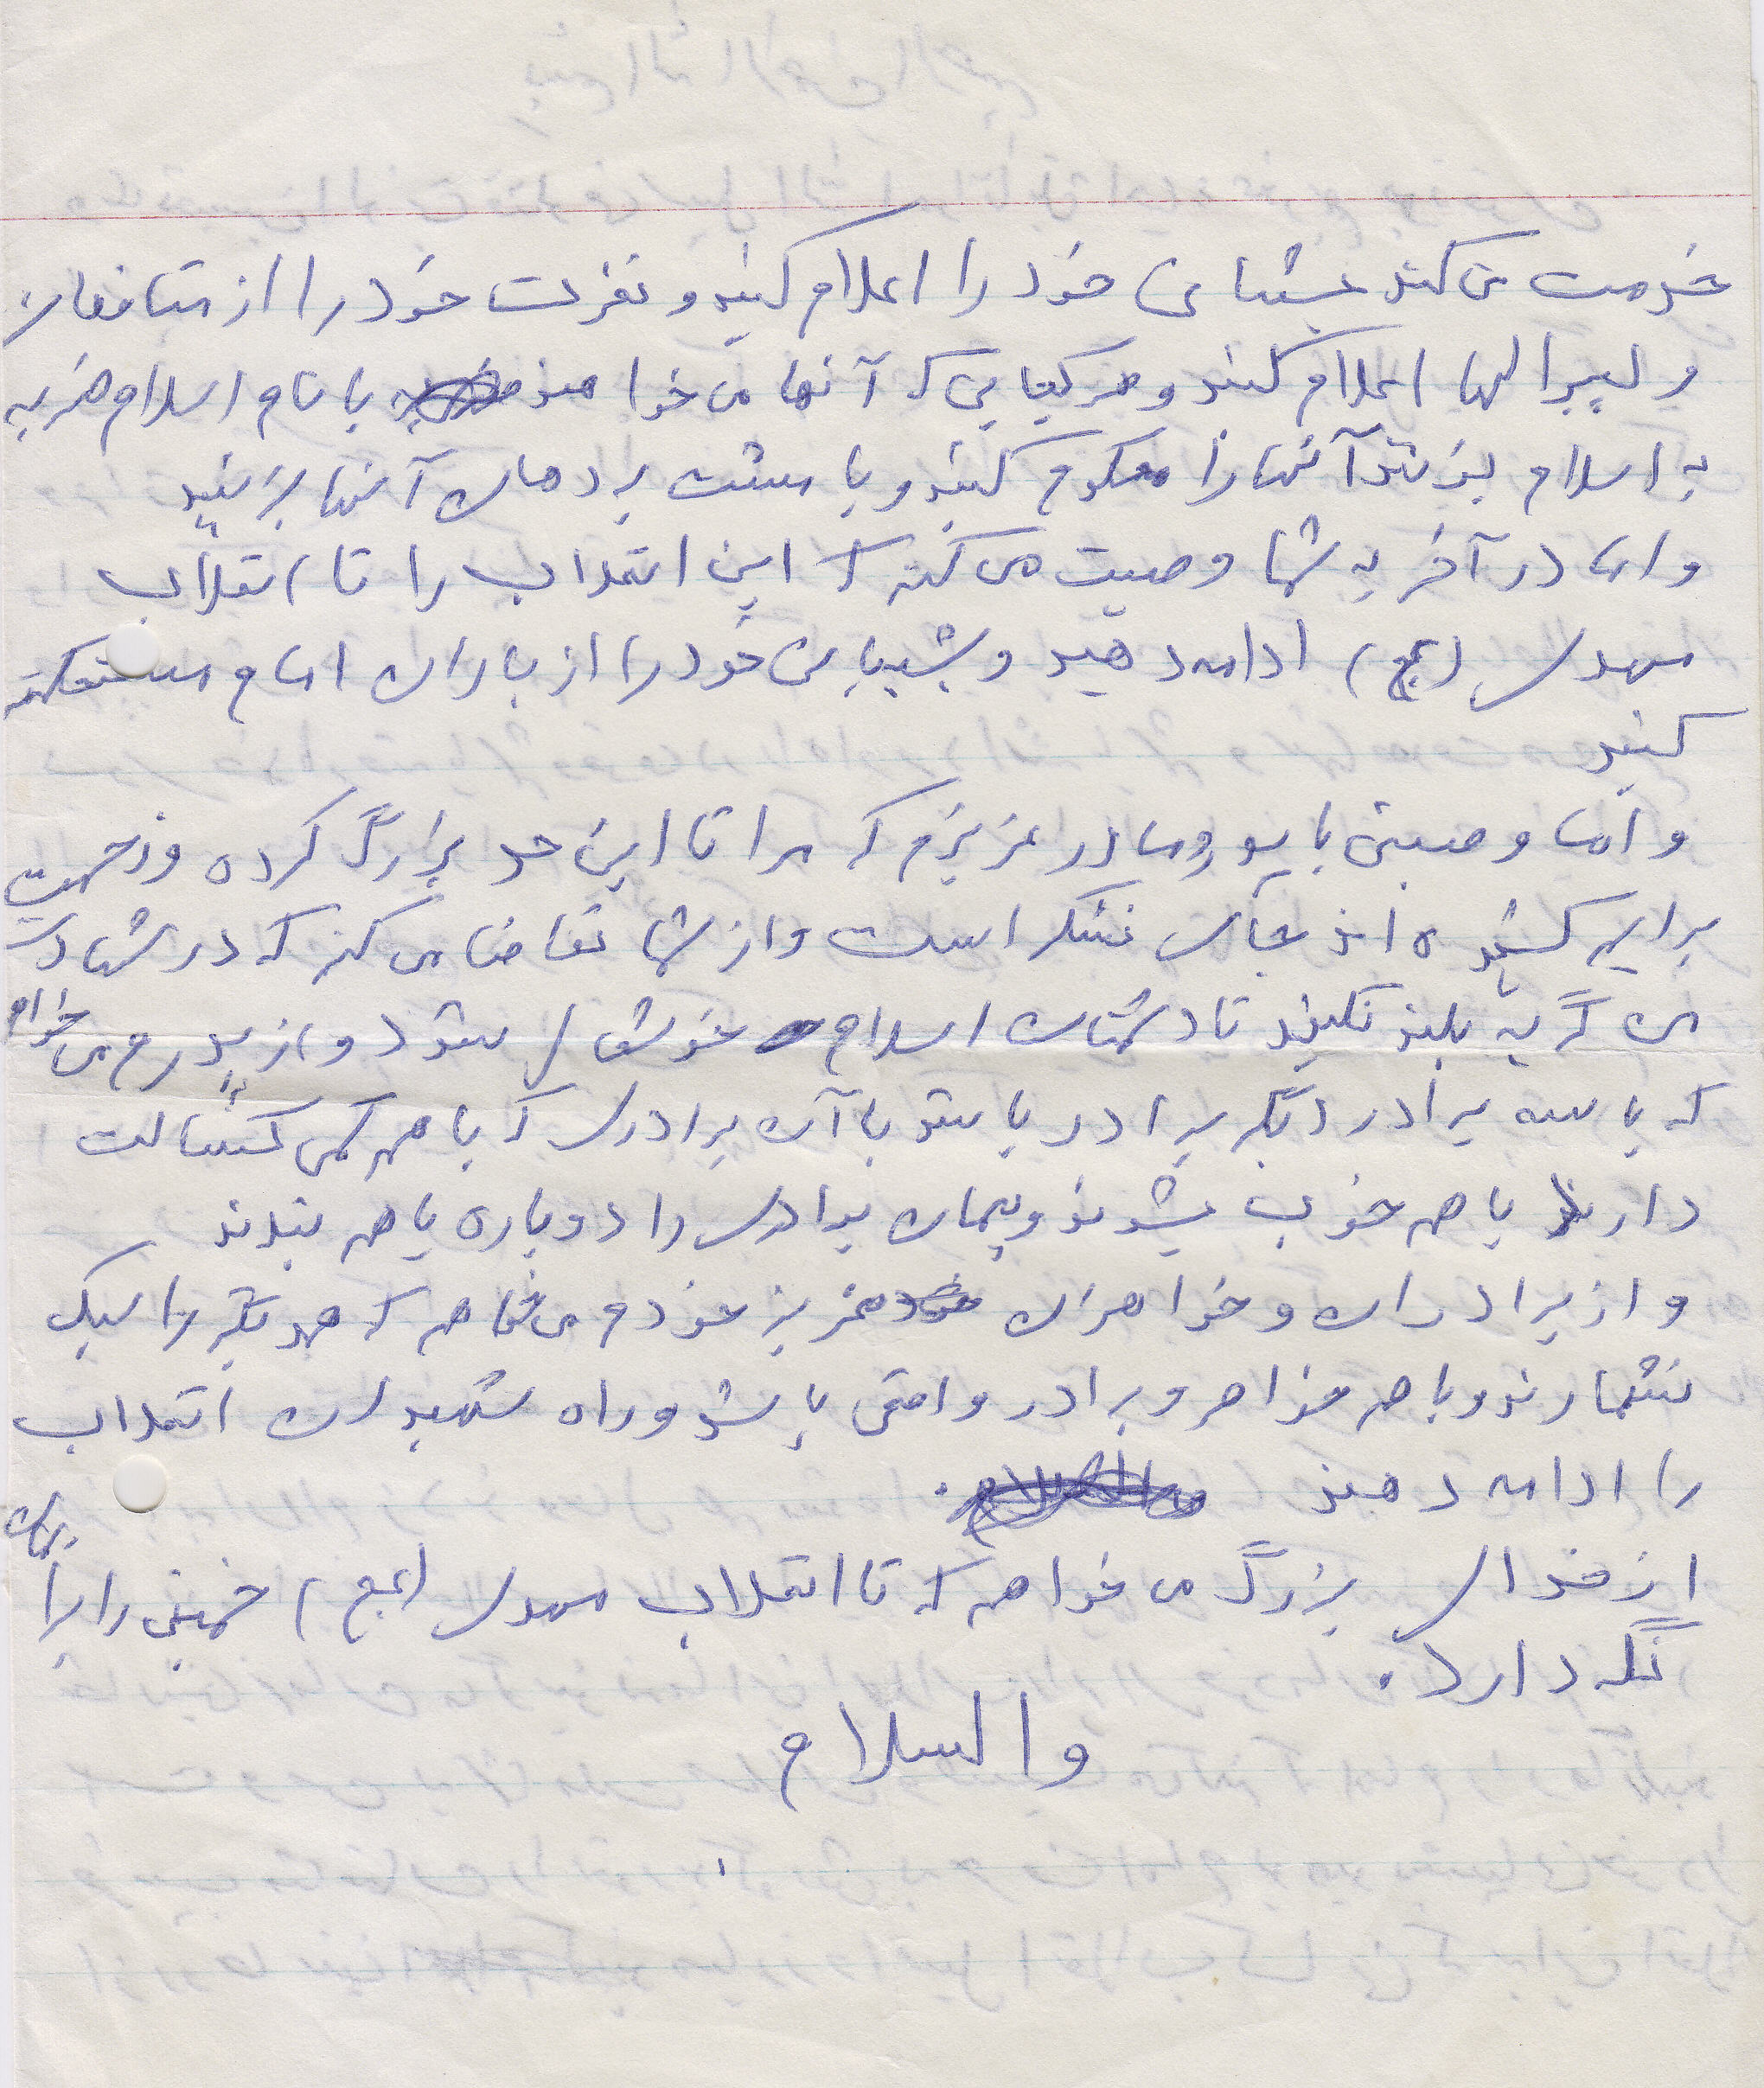 خدمت می کند پشتیبانی خود را اعلام کنید و نفرت خود را از منافقان
و لیبرالها اعلام کنید و هر کجایی که آنها می خواهند با نام اسلام ضربه
به اسلام بزنند آنها را محکوم کنید و با مشت بر دهان آنها بزنید
و اما در آخر به شما وصیت می کنم که این انقلاب را تا انقلاب
مهدی (عج) ادامه دهید و پشتیبانی خود را از یاران امام مستحکمتر
کنید
و اما وصیتی با پدر و مادر عزیزم که مرا تا این حد بزرگ کرده و زحمت
برایم کشیده اند جای تشکر است و از شما تقاضا می کنم که در شهادت
من گریه بلند نکنید تا دشمنان اسلام خوشحال شود و از پدرم می خواهم
که با سه برادر دیگر برادر باشد با آن برادری که با هم کمی کسالت
دارند با هم خوب بشوند و پیمان برادری را دوباره با هم ببندند
و از برادران و خواهران عزیز خودم می خواهم که همدیگر را سبک
نشمارند و با هم خواهر و برادر واقعی باشند و راه شهیدان انقلاب
را ادامه دهند
از خدای بزرگ می خواهم که تا انقلاب مهدی (عج) خمینی را برایمان
نگه دارد.
والسلام